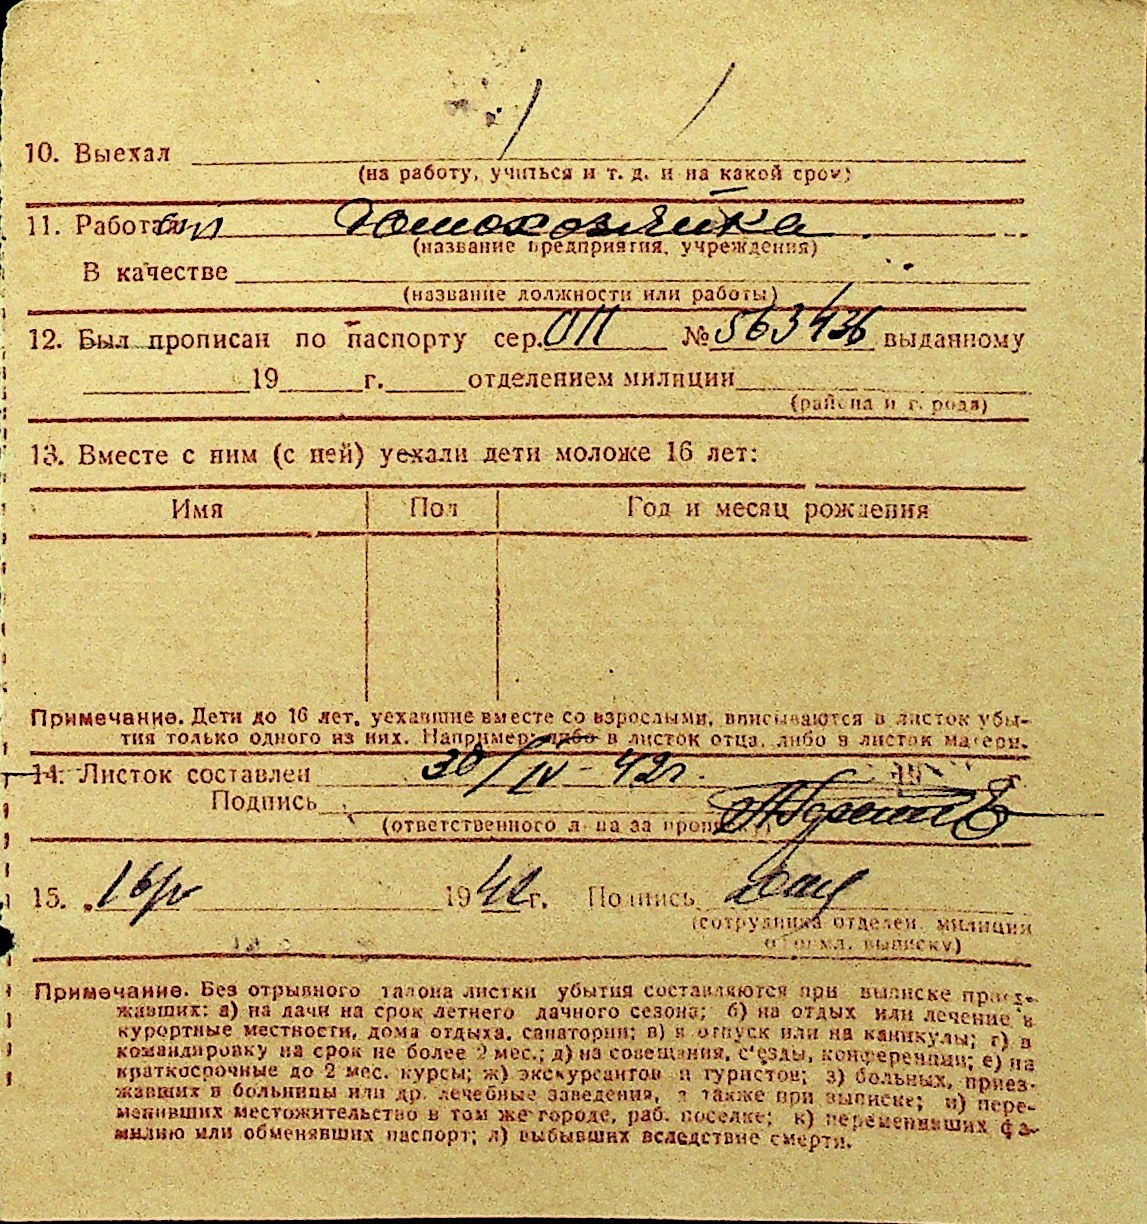 10. Выехал
(на работу, учиться и т. д. и на какой срок)
11. Работал домохозяйка
(название предприятия, учреждения)
В качестве
(название должности или работы)
12. Был прописан по паспорту сер. ОП № 563436 выданному
19 г. отделением милиции
(района и города)
13. Вместе с ним (с ней) уехали дети моложе 16 лет:
Имя Пол Год и месяц рождения
Примечание. Дети до 16 лет, уехавшие вместе со взрослыми, вписываются в листок убы-
тия только одного из них. Например: либо в листок отца, либо в листок матери.
14. Листок составлен 30/IV-42г. 19 г.
Подпись
(ответственного лица за прописку)
15. 1942 г. Подпись
(сотрудника отделен. милиции
оформл. выписку)
Примечание. Без отрывного талона листки убытия составляются при выписке приез-
жавших: а) на дачи на срок летнего дачного сезона; б) на отдых или лечение в
курортные местности, дома отдыха, санатории; в) в отпуск или на каникулы; г) в
командировку на срок не более 2 мес.; д) на совещания, с'езды, конференции; е) на
краткосрочные до 2 мес. курсы; ж) экскурсантов и туристов; з) больных, приез-
жавших в больницы или др. лечебные заведения, а также при выписке; и) пере-
менивших местожительство в том же городе, раб. поселке; к) переменивших фа-
милию или обменявших паспорт; л) выбывших вследствие смерти.